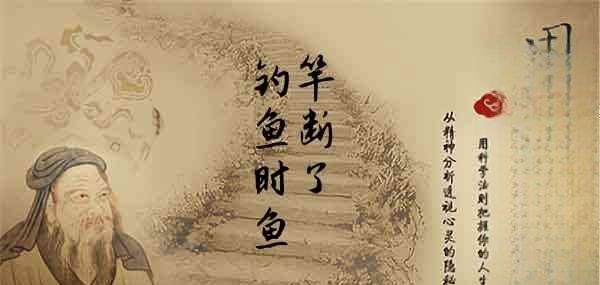 钓鱼时鱼
竿断了
用科学法则把握你的人生
从精神分析透视心灵的隐秘